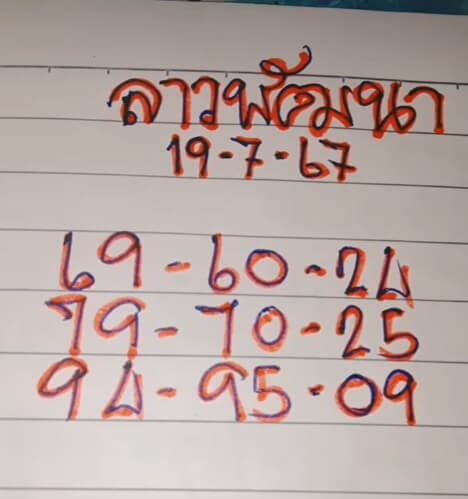 ลาวพัฒนา
19-7-67
69-60-24
79-70-25
94-95-09